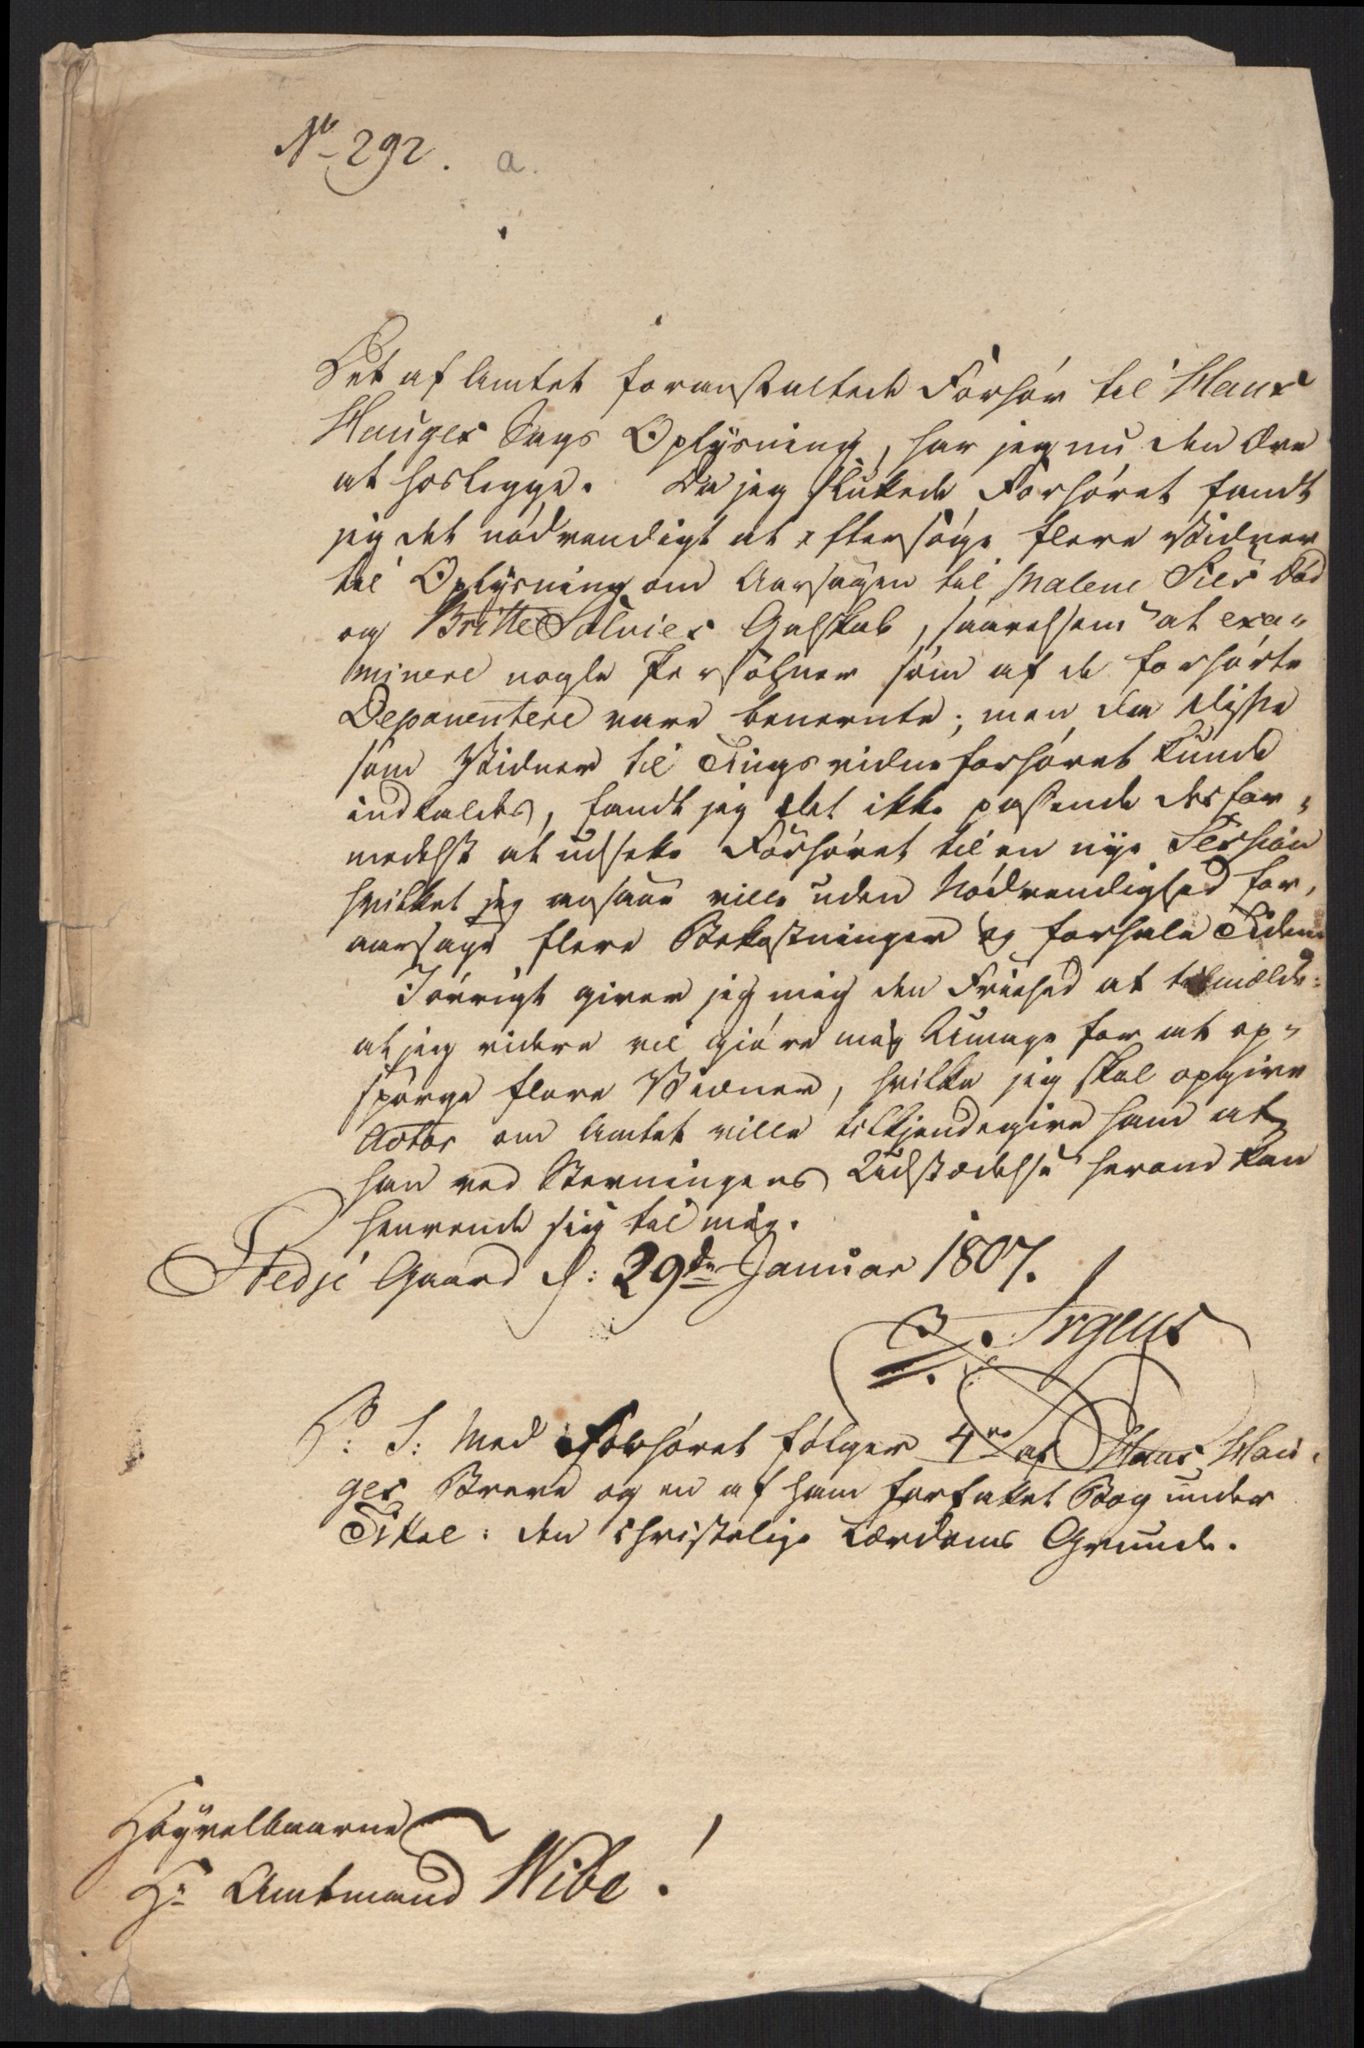 No 292. a.
Det af Amtet foranstaltede Forhør til Hans
Hauges Sags Oplysning, har jeg nu den Ære
at hoslegge. Da jeg sluttede Forhøret fandt
jeg det nødvendigt at eftersøge flere Vidner
til Oplysning om Aarsagen til Malene Sils Død
og Britte Solvies Galskab, saavelsom at exa-
minere nogle Persohner som af de forhørte
Deponentere vare benevnte; men da disse
som Vidner til Tingsvidneforhøret kunde
indkaldes, fandt jeg det ikke passende desfor-
medelst at udsette Forhøret til en nye Session
hvilket jeg ansaae ville uden Nødvendighed for-
aarsage flere Bekostninger og forhale Tiden.
Iøvrigt giver jeg mig den Friehed at tilmælde:
at jeg videre vil giøre mig Umage for at op-
spørge flere Vidner, hvilke jeg skal opgive
Actor om Amtet ville tilkjendegive ham at
han ved Stevningens Udstædelse herom kan
henvende sig til mig.
Stedje Gaard d: 29de Januar 1807.
Irgens
P: S: Med Forhøret følger 4re af Hans Hau-
ges Breve og en af ham forfattet Bog under
Titel: den christelige Lærdoms Grunde.
Høyvelbaarne
Hr Amtmand Wibe!